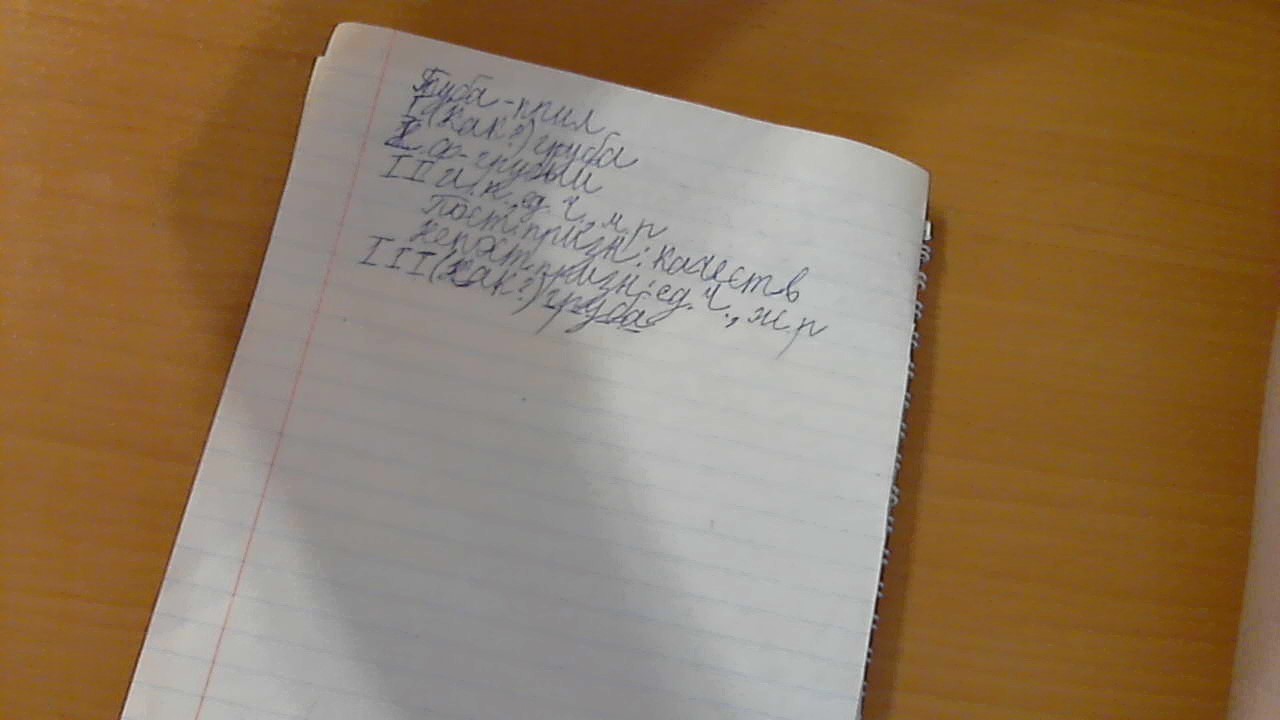 Груба - прил
I (Как?) груба
Н.ф - грубый
II и.п., ед.ч., м.р
Пост.призн: качеств
непост.призн: ед.ч., ж.р
III (Как?) груба